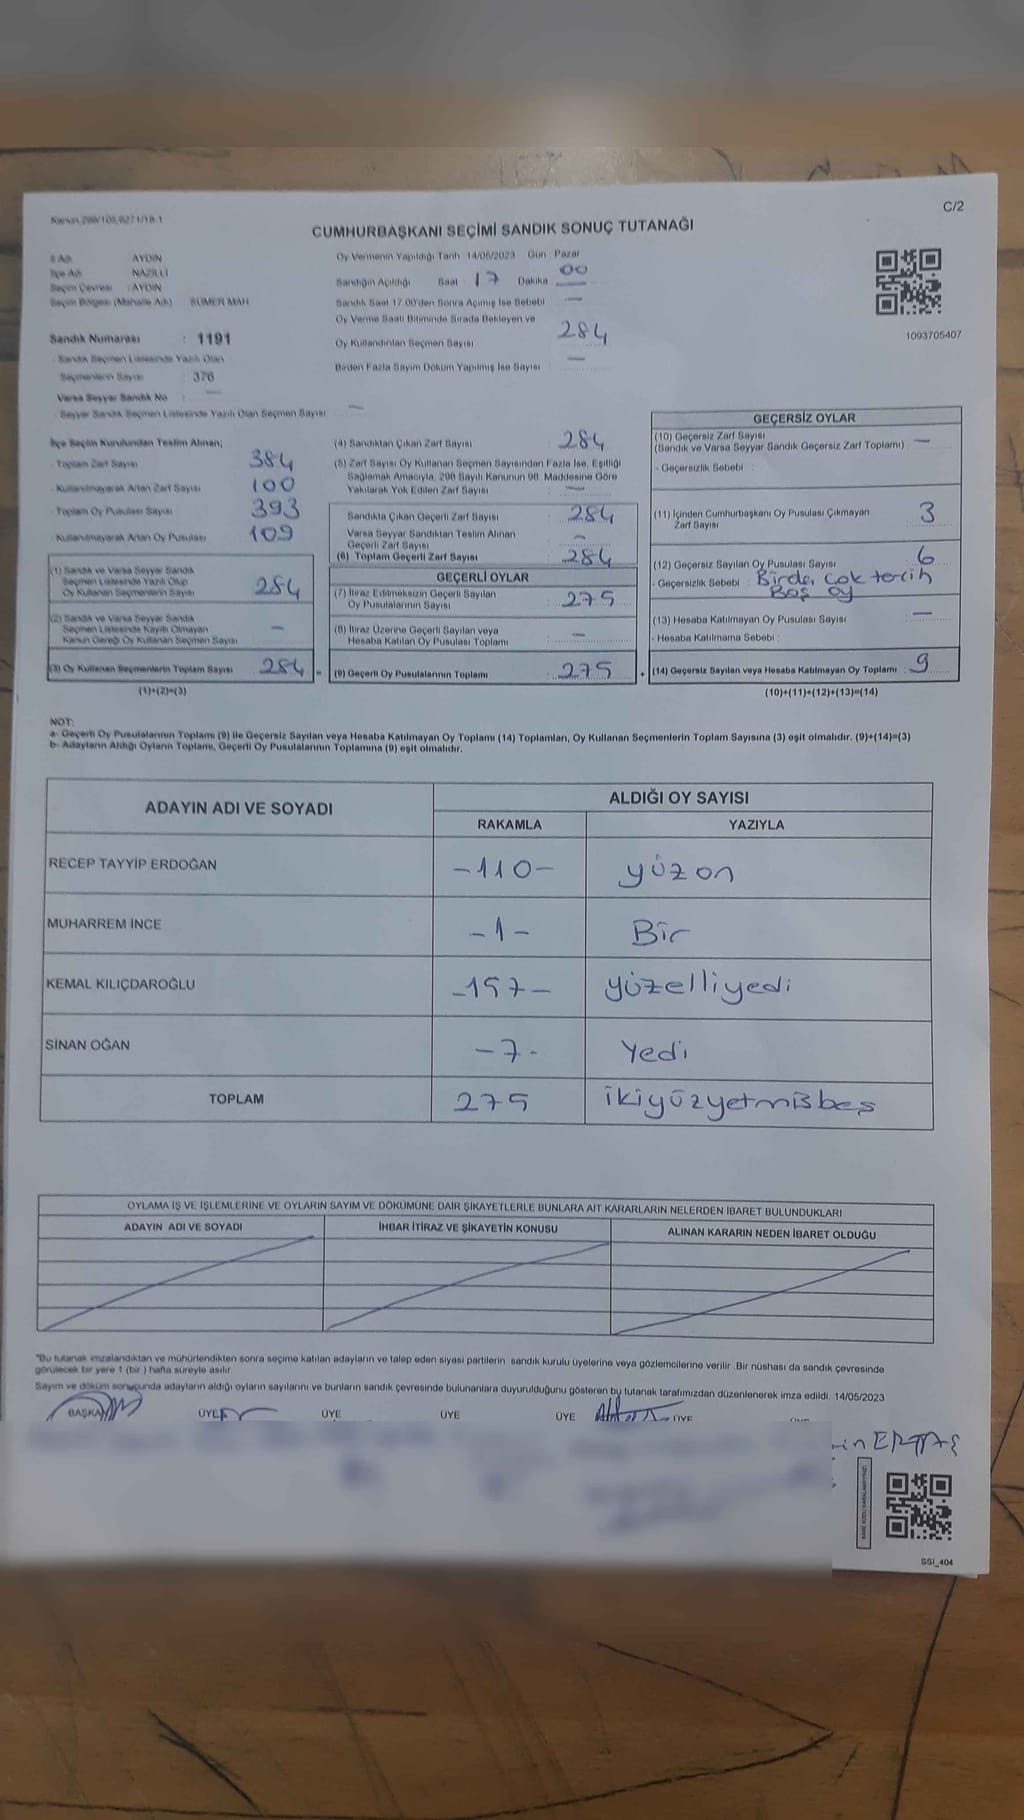 C/2
Kanun 298/105,6271/18-1
CUMHURBAŞKANI SEÇİMİ SANDIK SONUÇ TUTANAĞI
İl Adı : AYDIN
İlçe Adı : NAZİLLİ
Seçim Çevresi : AYDIN
Seçim Bölgesi (Mahalle Adı) : SÜMER MAH
Sandık Numarası : 1191
- Sandık Seçmen Listesinde Yazılı Olan
Seçmenlerin Sayısı : 376
Varsa Seyyar Sandık No : —
- Seyyar Sandık Seçmen Listesinde Yazılı Olan Seçmen Sayısı : —
Oy Vermenin Yapıldığı Tarih 14/05/2023 Gün Pazar
Sandığın Açıldığı Saat 17 Dakika 00
Sandık Saat 17.00'den Sonra Açılmış İse Sebebi —
Oy Verme Saati Bitiminde Sırada Bekleyen ve
Oy Kullandırılan Seçmen Sayısı 284
Birden Fazla Sayım Döküm Yapılmış İse Sayısı : —
1093705407
İlçe Seçim Kurulundan Teslim Alınan;
- Toplam Zarf Sayısı 384
- Kullanılmayarak Artan Zarf Sayısı 100
- Toplam Oy Pusulası Sayısı 393
- Kullanılmayarak Artan Oy Pusulası 109
(1) Sandık ve Varsa Seyyar Sandık
Seçmen Listesinde Yazılı Olup
Oy Kullanan Seçmenlerin Sayısı 284
(2) Sandık ve Varsa Seyyar Sandık
Seçmen Listesinde Kayıtlı Olmayan
Kanun Gereği Oy Kullanan Seçmen Sayısı —
(3) Oy Kullanan Seçmenlerin Toplam Sayısı 284 =
(1)+(2)=(3)
(4) Sandıktan Çıkan Zarf Sayısı 284
(5) Zarf Sayısı Oy Kullanan Seçmen Sayısından Fazla İse, Eşitliği
Sağlamak Amacıyla, 298 Sayılı Kanunun 98. Maddesine Göre
Yakılarak Yok Edilen Zarf Sayısı : —
Sandıkta Çıkan Geçerli Zarf Sayısı : 284
Varsa Seyyar Sandıktan Teslim Alınan
Geçerli Zarf Sayısı : —
(6) Toplam Geçerli Zarf Sayısı : 284
GEÇERLİ OYLAR
(7) İtiraz Edilmeksizin Geçerli Sayılan
Oy Pusulalarının Sayısı : 275
(8) İtiraz Üzerine Geçerli Sayılan veya
Hesaba Katılan Oy Pusulası Toplamı : —
(9) Geçerli Oy Pusulalarının Toplamı : 275 +
GEÇERSİZ OYLAR
(10) Geçersiz Zarf Sayısı
(Sandık ve Varsa Seyyar Sandık Geçersiz Zarf Toplamı) : —
- Geçersizlik Sebebi :
(11) İçinden Cumhurbaşkanı Oy Pusulası Çıkmayan
Zarf Sayısı : 3
(12) Geçersiz Sayılan Oy Pusulası Sayısı : 6
- Geçersizlik Sebebi : Birden çok tercih
Boş oy
(13) Hesaba Katılmayan Oy Pusulası Sayısı : —
- Hesaba Katılmama Sebebi :
(14) Geçersiz Sayılan veya Hesaba Katılmayan Oy Toplamı : 9
(10)+(11)+(12)+(13)=(14)
NOT:
a- Geçerli Oy Pusulalarının Toplamı (9) ile Geçersiz Sayılan veya Hesaba Katılmayan Oy Toplamı (14) Toplamları, Oy Kullanan Seçmenlerin Toplam Sayısına (3) eşit olmalıdır. (9)+(14)=(3)
b- Adayların Aldığı Oyların Toplamı, Geçerli Oy Pusulalarının Toplamına (9) eşit olmalıdır.
ADAYIN ADI VE SOYADI ALDIĞI OY SAYISI
RAKAMLA YAZIYLA
RECEP TAYYİP ERDOĞAN -110- yüzon
MUHARREM İNCE -1- Bir
KEMAL KILIÇDAROĞLU -157- yüzelliyedi
SİNAN OĞAN -7- Yedi
TOPLAM 275 ikiyüzyetmişbeş
OYLAMA İŞ VE İŞLEMLERİNE VE OYLARIN SAYIM VE DÖKÜMÜNE DAİR ŞİKAYETLERLE BUNLARA AİT KARARLARIN NELERDEN İBARET BULUNDUKLARI
ADAYIN ADI VE SOYADI İHBAR İTİRAZ VE ŞİKAYETİN KONUSU ALINAN KARARIN NEDEN İBARET OLDUĞU
"Bu tutanak imzalandıktan ve mühürlendikten sonra seçime katılan adayların ve talep eden siyasi partilerin sandık kurulu üyelerine veya gözlemcilerine verilir. Bir nüshası da sandık çevresinde
görülecek bir yere 1 (bir ) hafta süreyle asılır.
Sayım ve döküm sonucunda adayların aldığı oyların sayılarını ve bunların sandık çevresinde bulunanlara duyurulduğunu gösteren bu tutanak tarafımızdan düzenlenerek imza edildi. 14/05/2023
BAŞKAN ÜYE ÜYE ÜYE ÜYE ÜYE
ERTAŞ
SSI_404